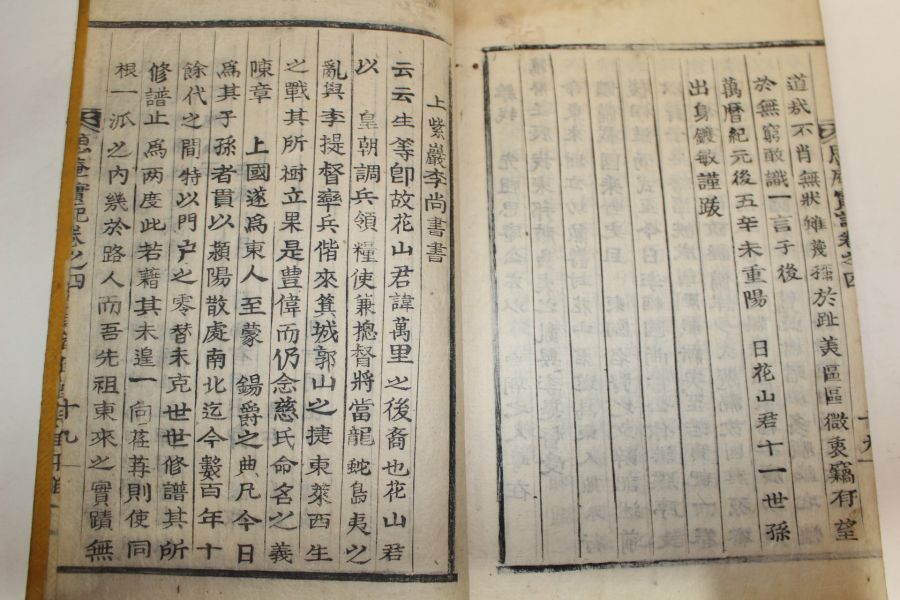 道哉不肖無狀雖幾稱於趾美區區微衷竊有望
於無窮敢識一言子後
萬曆紀元後五辛未重陽 日花山君十一世孫
出身鍍敏謹跋
上紫巖李尚書書
云云生等卽故花山君諱萬里之後裔也花山君
以 皇朝調兵領糧使兼摠督將當龍蛇島夷之
亂與李提督率兵偕來箕城郭山之捷東萊西生
之戰其所樹立果是豊偉而仍念慈氏命名之義
陳章 上國遂爲東人至蒙 錫爵之典凡今日
爲其子孫者貫以潁陽散處南北迄今數百年十
餘代之間特以門戶之零替未克世世修譜其所
修譜止爲兩度此若藉其未遑一向荏苒則使同
根一派之內幾於路人而吾先祖東來之實蹟無
思庵實記卷之四
十九